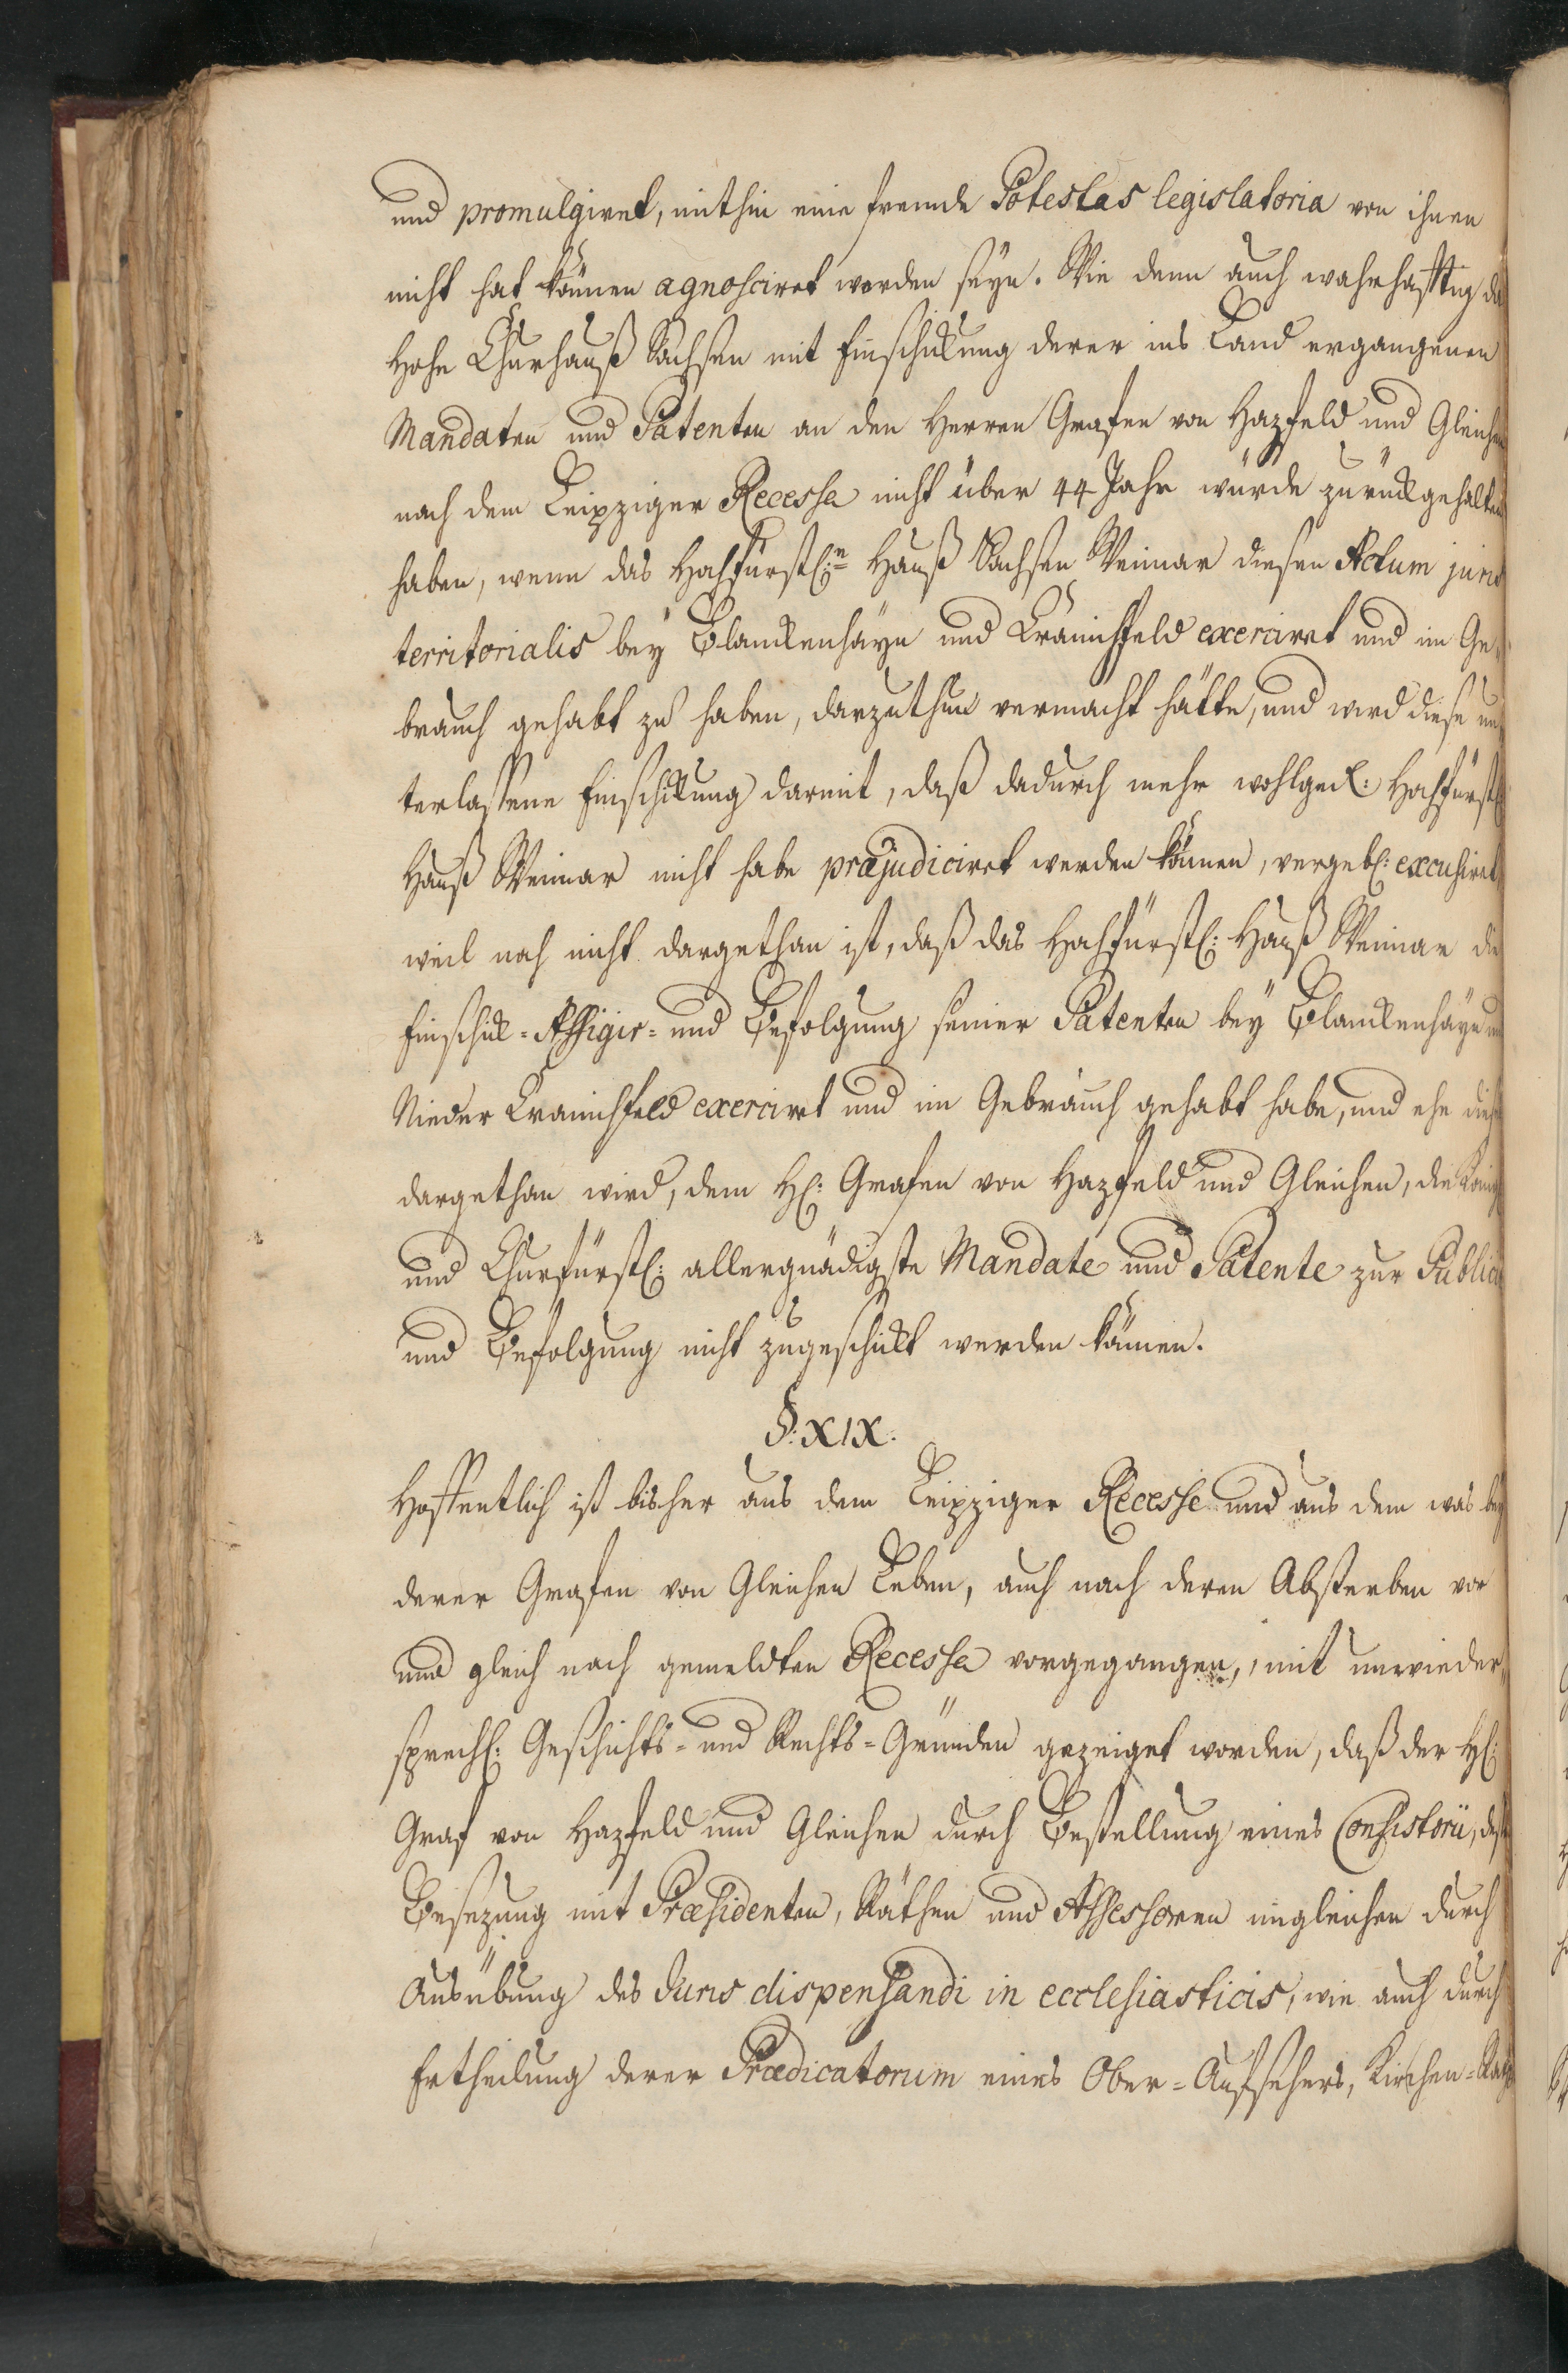 und promulgiret, mithin eine fremde Potestas legislatoria von ihnen
nicht hat können agnosciret worden seyn. Wie denn auch wahrhafftig da
Hohe Churhauß Sachsen mit Einschickung derer ins Land ergangenen
Mandaten und Patenten an den Herren Grafen von Hazfeld und Gleichen
nach dem Leipziger Recesse nicht über 44 Jahr würde zurückgehalten
haben, wenn das Hochfürstl:n Hauß Sachsen Weimar diesen Actum juris
territorialis bey Blanckenhayn und Kranichfeld exerciret und im Ge-
brauch gehabt zu haben, darzuthun vermocht hätte, und wird diese un-
terlassene Einschickung darmit, daß dadurch mehr wohlged: Hochfürstl
Hauß Weimar nicht habe præjudiciret werden können, vergebl: excusiret,
weil noch nicht dargethan ist, daß das Hochfürstl: Hauß Weimar die
Einschick- Affigir- und Befolgung seiner Patenten bey Blanckenhayn und
Nieder Kranichfeld exerciret und im Gebrauch gehabt habe, und ehe dieses
dargethan wird, dem H: Grafen von Hazfeld und Gleichen, die Königl
und Churfürstl: allergnädigste Mandate und Patente zur Public
und Befolgung nicht zugeschickt werden können.
§: XIX.
Hoffentlich ist bisher aus dem Leipziger Recesse und aus dem was bey
derer Grafen von Gleichen Leben, auch nach deren Absterben vor
und gleich nach gemeldten Recesse vorgegangen, mit unwieder-
sprechl: Geschichts- und Rechts-Gründen gezeiget worden, daß der H:
Graf von Hazfeld und Gleichen durch Bestellung eines Consistorii, deß
Besezung mit Præsidenten, Räthen und Assessoren ingleichen durch
Ausübung des Juris dispensandi in ecclesiasticis, wie auch durch
Ertheilung derer Prædicatorum eines Ober-Aufsehers, Kirchen-Raths